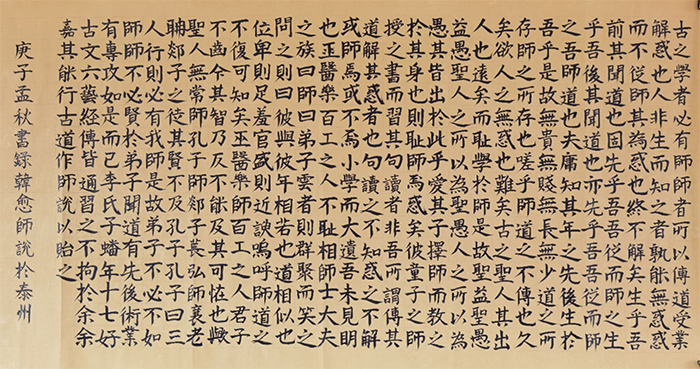 古之學者必有師師者所以傳道受業
解惑也人非生而知之者孰能無惑惑
而不從師其為惑也終不解矣生乎吾
前其聞道也固先乎吾吾從而師之生
乎吾後其聞道也亦先乎吾吾從而師
之吾師道也夫庸知其年之先後生於
吾乎是故無貴無賤無長無少道之所
存師之所存也嗟乎師道之不傳也久
矣欲人之無惑也難矣古之聖人其出
人也遠矣而耻學於師是故聖益聖愚
益愚聖人之所以為聖愚人之所以為
愚其皆出於此乎愛其子擇師而教之
於其身也則耻師焉惑矣彼童子之師
授之書而習其句讀者非吾所謂傳其
道解其惑者也句讀之不知惑之不解
或師焉或不焉小學而大遺吾未見明
也巫醫樂百工之人不耻相師士大夫
之族曰師曰弟子雲者則群聚而笑之
問之則曰彼與彼年相若也道相似也
位卑則足羞官盛則近諛嗚呼師道之
不復可知矣巫醫樂師百工之人君子
不齒今其智乃反不能及其可怪也歟
聖人無常師孔子師郯子萇弘師襄老
聃郯子之徒其賢不及孔子孔子曰三
人行則必有我師是故弟子不必不如
師師不必賢於弟子聞道有先後術業
有專攻如是而已李氏子蟠年十七好
古文六藝經傳皆通習之不拘於余余
嘉其能行古道作師說以貽之
庚子孟秋書錄韓愈師說於泰州